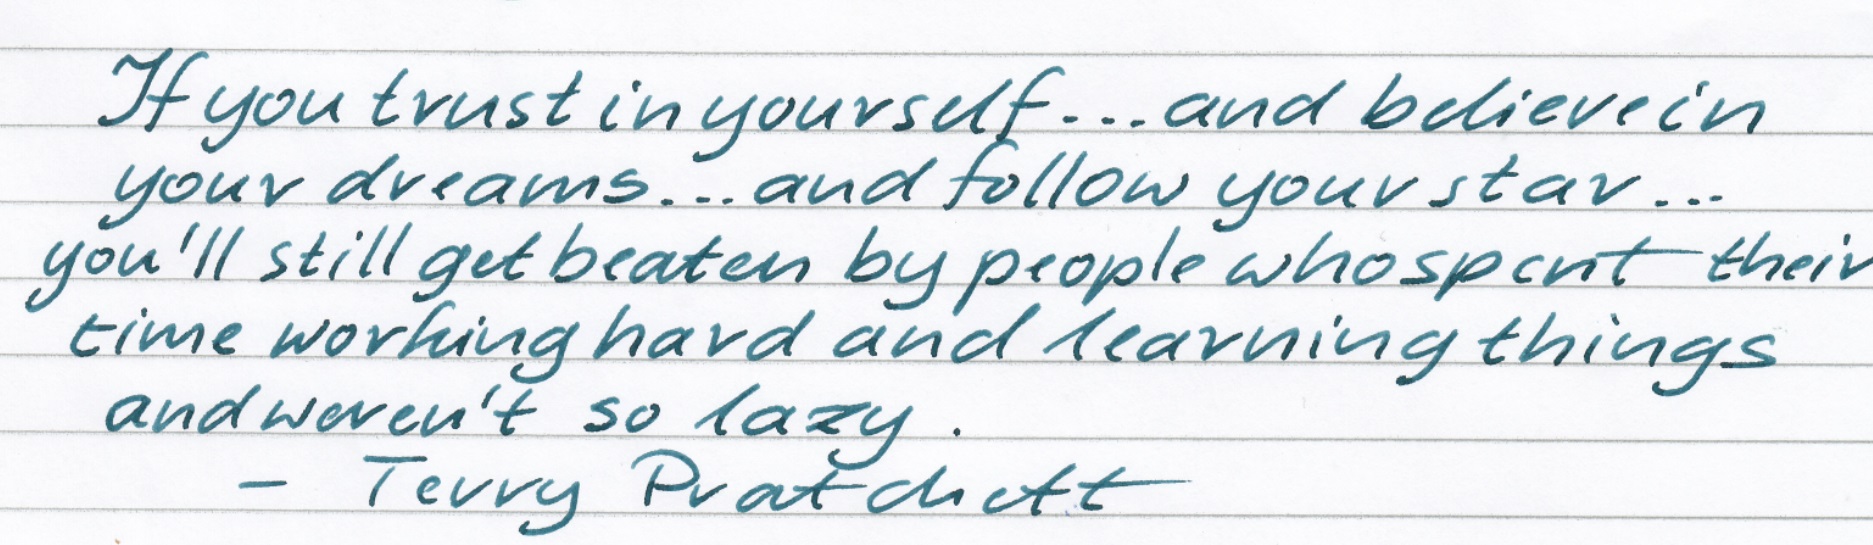 If you trust in yourself...and believe in
your dreams...and follow your star...
you'll still get beaten by people who spent their
time working hard and learning things
and weren't so lazy.
- Terry Pratchett